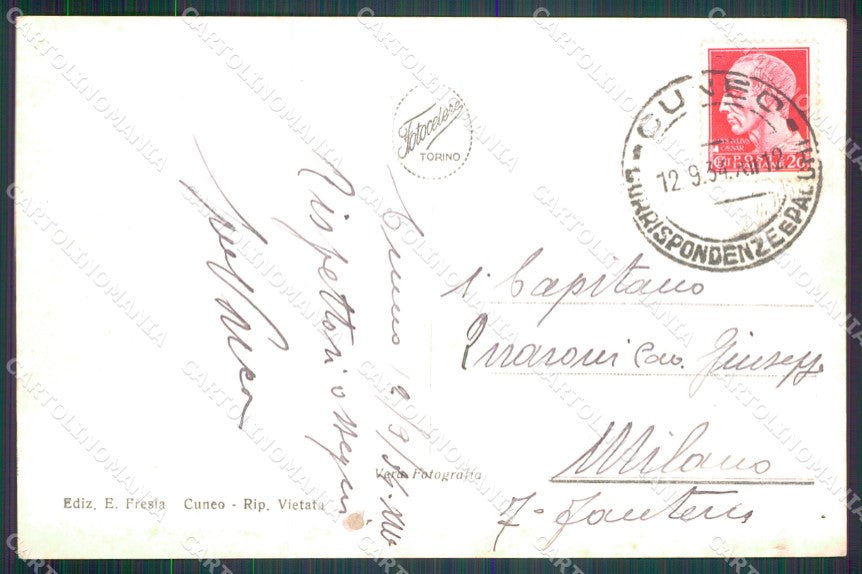 Fotocelere
TORINO
CUNEO
CORRISPONDENZE E PACCHI
12.9.34.XII 12
POSTE
ITALIANE
20
Cuneo 12/9/34. XII°
Rispettosi ossequi
Capitano
Cav. Giuseppe
Milano
7° Fanteria
Vera Fotografia
Ediz. E. Fresia Cuneo - Rip. Vietata
CARTOLINOMANIA